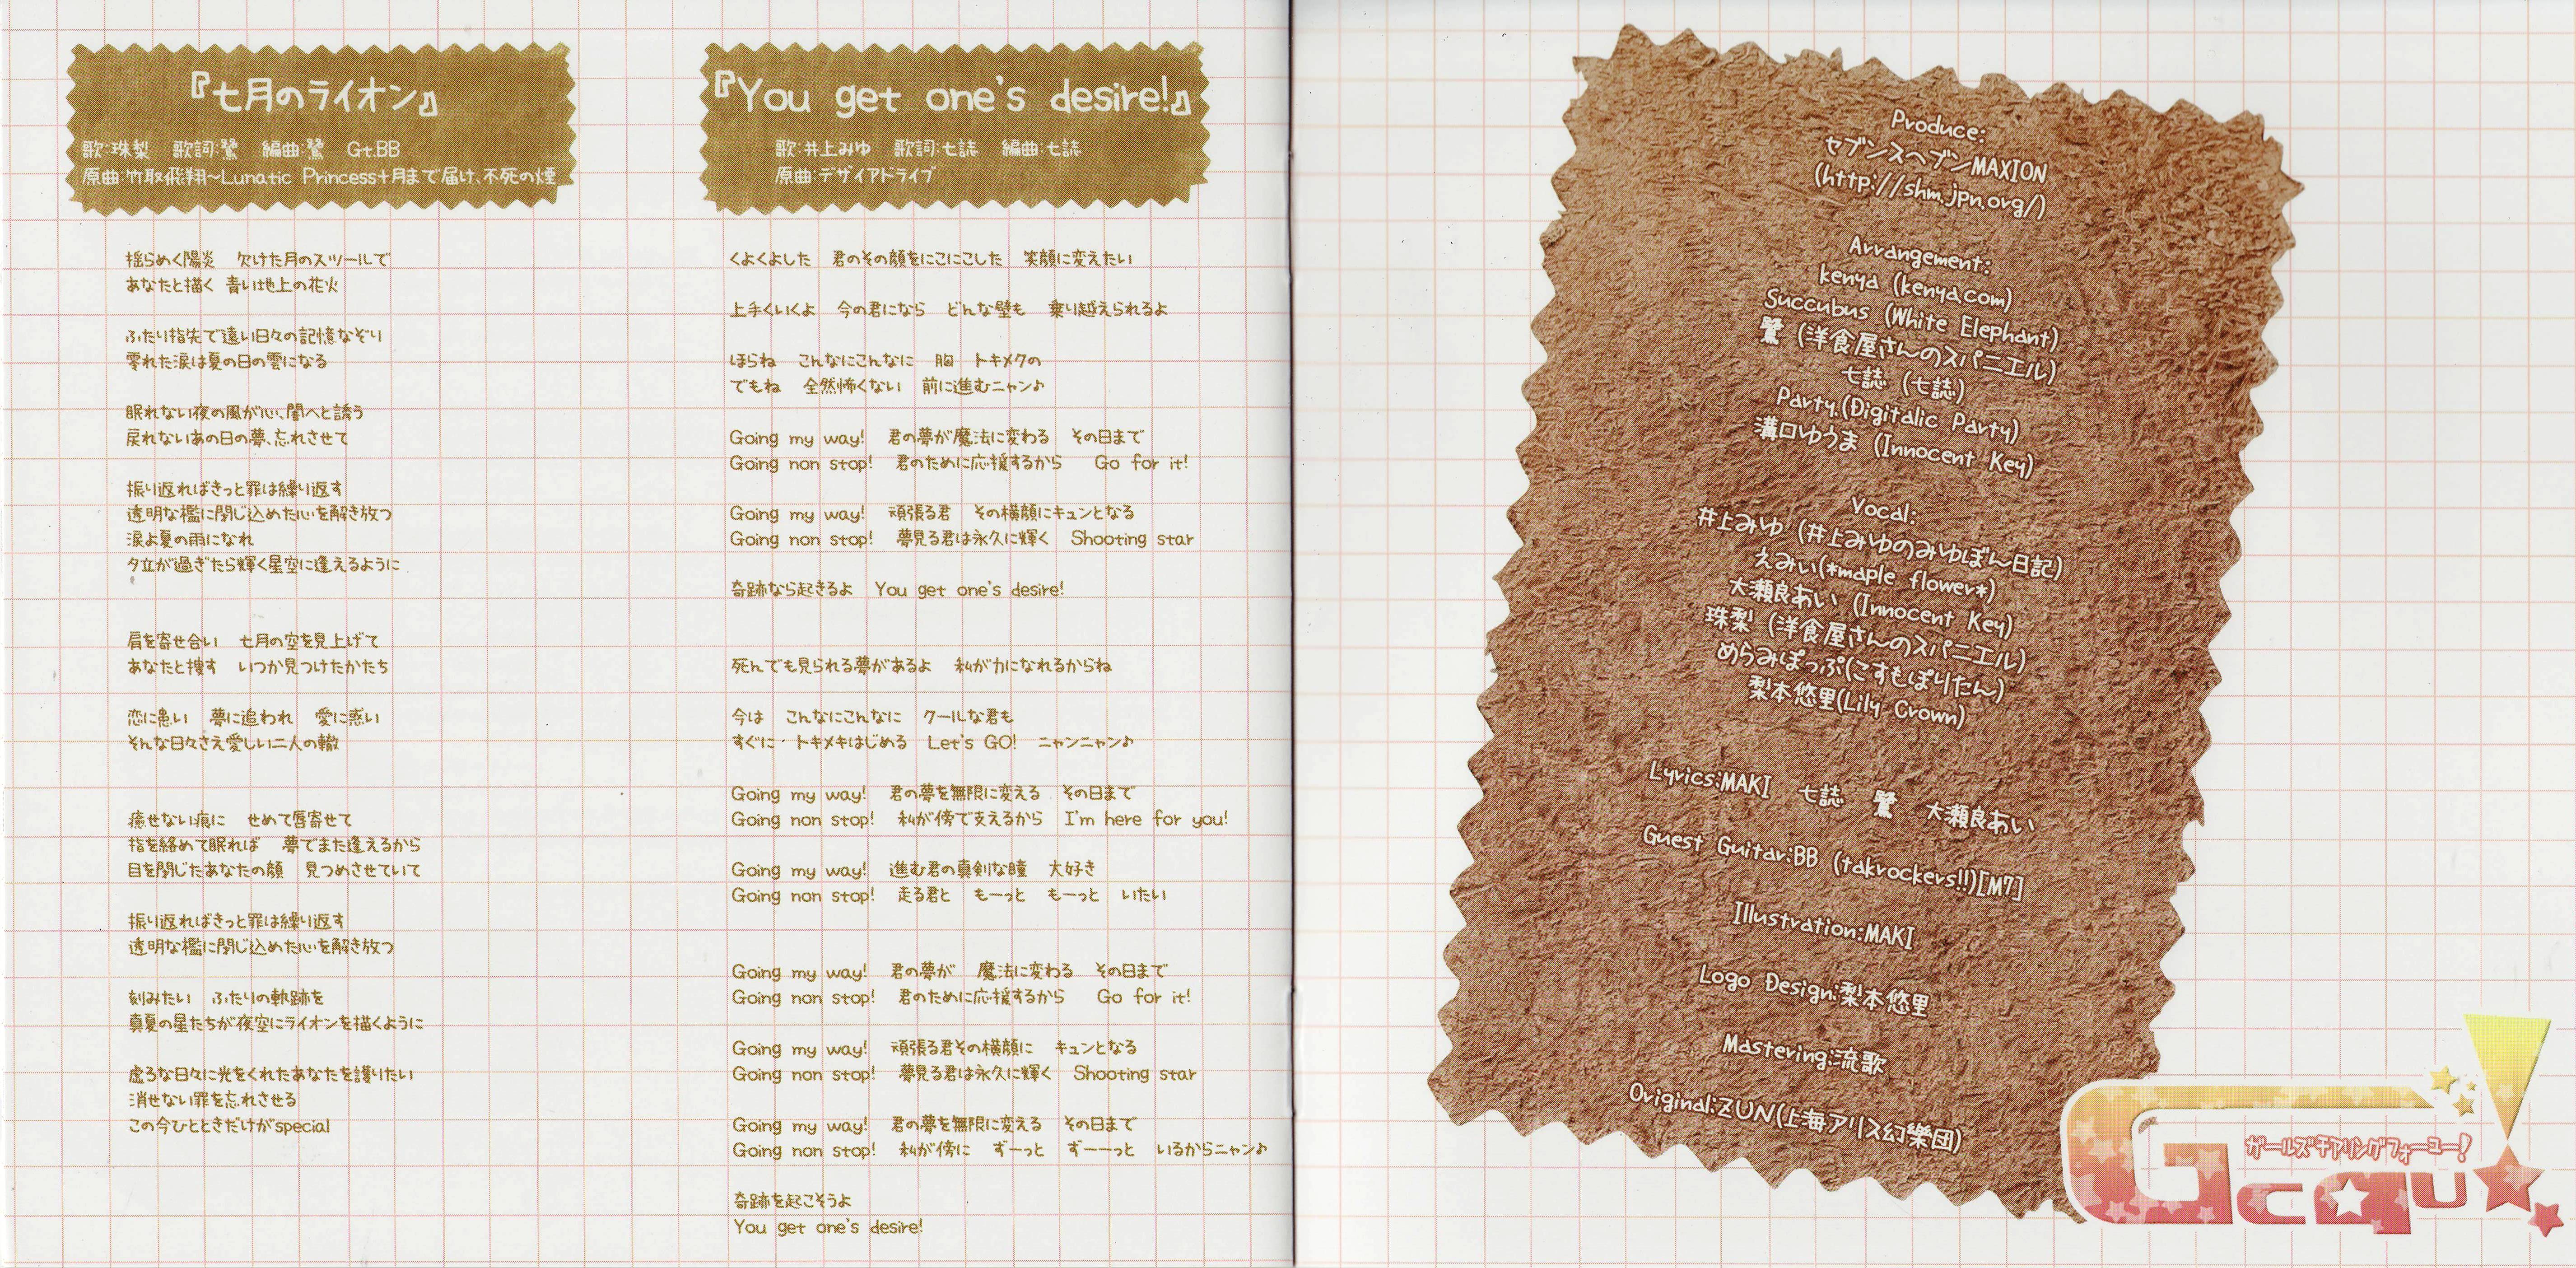 『七月のライオン』
歌:珠梨　歌詞:鷺　編曲:鷺　Gt.BB
原曲:竹取飛翔～Lunatic Princess+月まで届け、不死の煙
揺らめく陽炎　欠けた月のスツールで
あなたと描く　青い地上の花火
ふたり指先で遠い日々の記憶なぞり
零れた涙は夏の日の雲になる
眠れない夜の風が心、闇へと誘う
戻れないあの日の夢、忘れさせて
振り返ればきっと罪は繰り返す
透明な檻に閉じ込めた心を解き放つ
涙よ夏の雨になれ
夕立が過ぎたら輝く星空に逢えるように
肩を寄せ合い　七月の空を見上げて
あなたと捜す　いつか見つけたかたち
恋に患い　夢に追われ　愛に惑い
そんな日々さえ愛しい二人の轍
癒せない痕に　せめて唇寄せて
指を絡めて眠れば　夢でまた逢えるから
目を閉じたあなたの顔　見つめさせていて
振り返ればきっと罪は繰り返す
透明な檻に閉じ込めた心を解き放つ
刻みたい　ふたりの軌跡を
真夏の星たちが夜空にライオンを描くように
虚ろな日々に光をくれたあなたを護りたい
消せない罪を忘れさせる
この今ひとときだけがspecial
『You get one's desire!』
歌:井上みゆ　歌詞:七誌　編曲:七誌
原曲:デザイアドライブ
くよくよした　君のその顔をにこにこした　笑顔に変えたい
上手くいくよ　今の君になら　どんな壁も　乗り越えられるよ
ほらね　こんなにこんなに　胸　トキメクの
でもね　全然怖くない　前に進むニャン♪
Going my way!　君の夢が魔法に変わる　その日まで
Going non stop!　君のために応援するから　Go for it!
Going my way!　頑張る君　その横顔にキュンとなる
Going non stop!　夢見る君は永久に輝く　Shooting star
奇跡なら起きるよ　You get one's desire!
死んでも見られる夢があるよ　私が力になれるからね
今は　こんなにこんなに　クールな君も
すぐに・トキメキはじめる　Let's GO!　ニャンニャン♪
Going my way!　君の夢を無限に変える　その日まで
Going non stop!　私が傍で支えるから　I'm here for you!
Going my way!　進む君の真剣な瞳　大好き
Going non stop!　走る君と　もーっと　もーっと　いたい
Going my way!　君の夢が　魔法に変わる　その日まで
Going non stop!　君のために応援するから　Go for it!
Going my way!　頑張る君その横顔に　キュンとなる
Going non stop!　夢見る君は永久に輝く　Shooting star
Going my way!　君の夢を無限に変える　その日まで
Going non stop!　私が傍に　ずーっと　ずーーっと　いるからニャン♪
奇跡を起こそうよ
You get one's desire!
Produce:
セブンスヘブンMAXION
(http://shm.jpn.org/)
Arrangement:
kenya (kenya.com)
Succubus (White Elephant)
鷺 (洋食屋さんのスパニエル)
七誌 (七誌)
Party.(Digitalic Party)
溝口ゆうま (Innocent Key)
Vocal:
井上みゆ (井上みゆのみゆぽん日記)
えみぃ(*maple flower*)
大瀬良あい (Innocent Key)
珠梨 (洋食屋さんのスパニエル)
めらみぽっぷ(こすもぽりたん)
梨本悠里(Lily Crown)
Lyrics:MAKI　七誌　鷺　大瀬良あい
Guest Guitar:BB (takrockers!!)[M7]
Illustration:MAKI
Logo Design:梨本悠里
Mastering:流歌
Original:ZUN(上海アリス幻樂団)
ガールズチアリングフォーユー!
Gcqu!